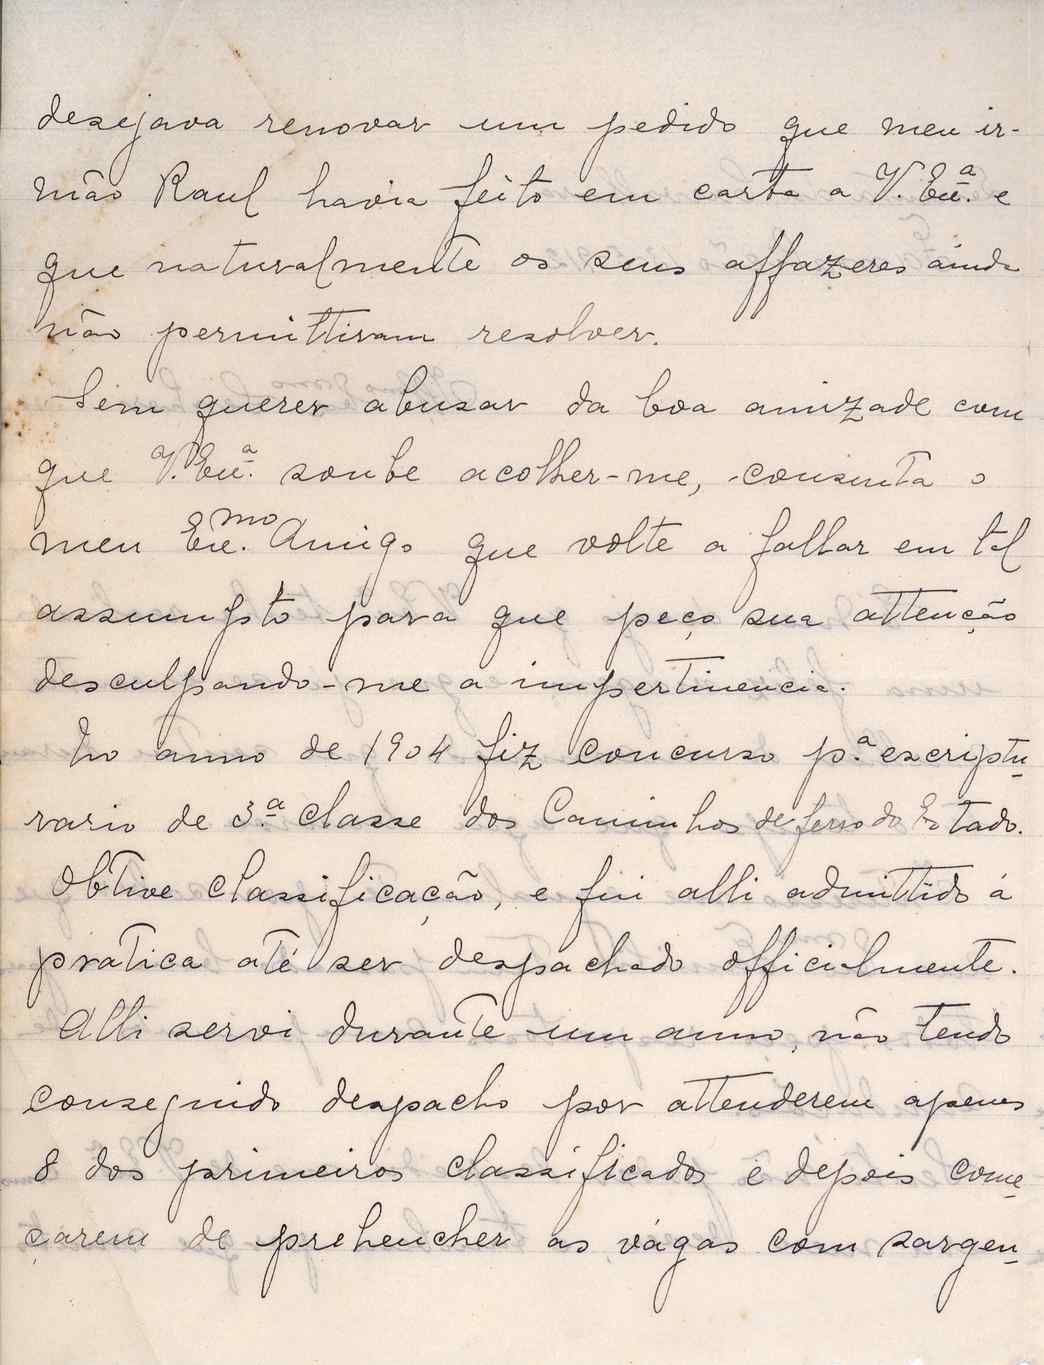 desejava renovar um pedido que meu ir-
mão Raul havia feito em carta a V. Ex.ª e
que naturalmente os seus affazeres ainda
não permittiram resolver.
Sem querer abusar da boa amizade com
que V. Ex.ª soube acolher-me, consinta o
meu Ex.mo Amigo que volte a fallar em tal
assumpto para que peço sua attenção
desculpando-me a impertinencia.
No anno de 1904 fiz concurso p.ª escriptu-
rario de 3.ª classe dos Caminhos de ferro do Estado.
Obtive classificação, e fui alli admittido á
pratica até ser despachado officialmente.
Alli servi durante um anno, não tendo
conseguido despacho por attenderem apenas
8 dos primeiros classificados e depois come-
çarem de prehencher as vágas com sargen-